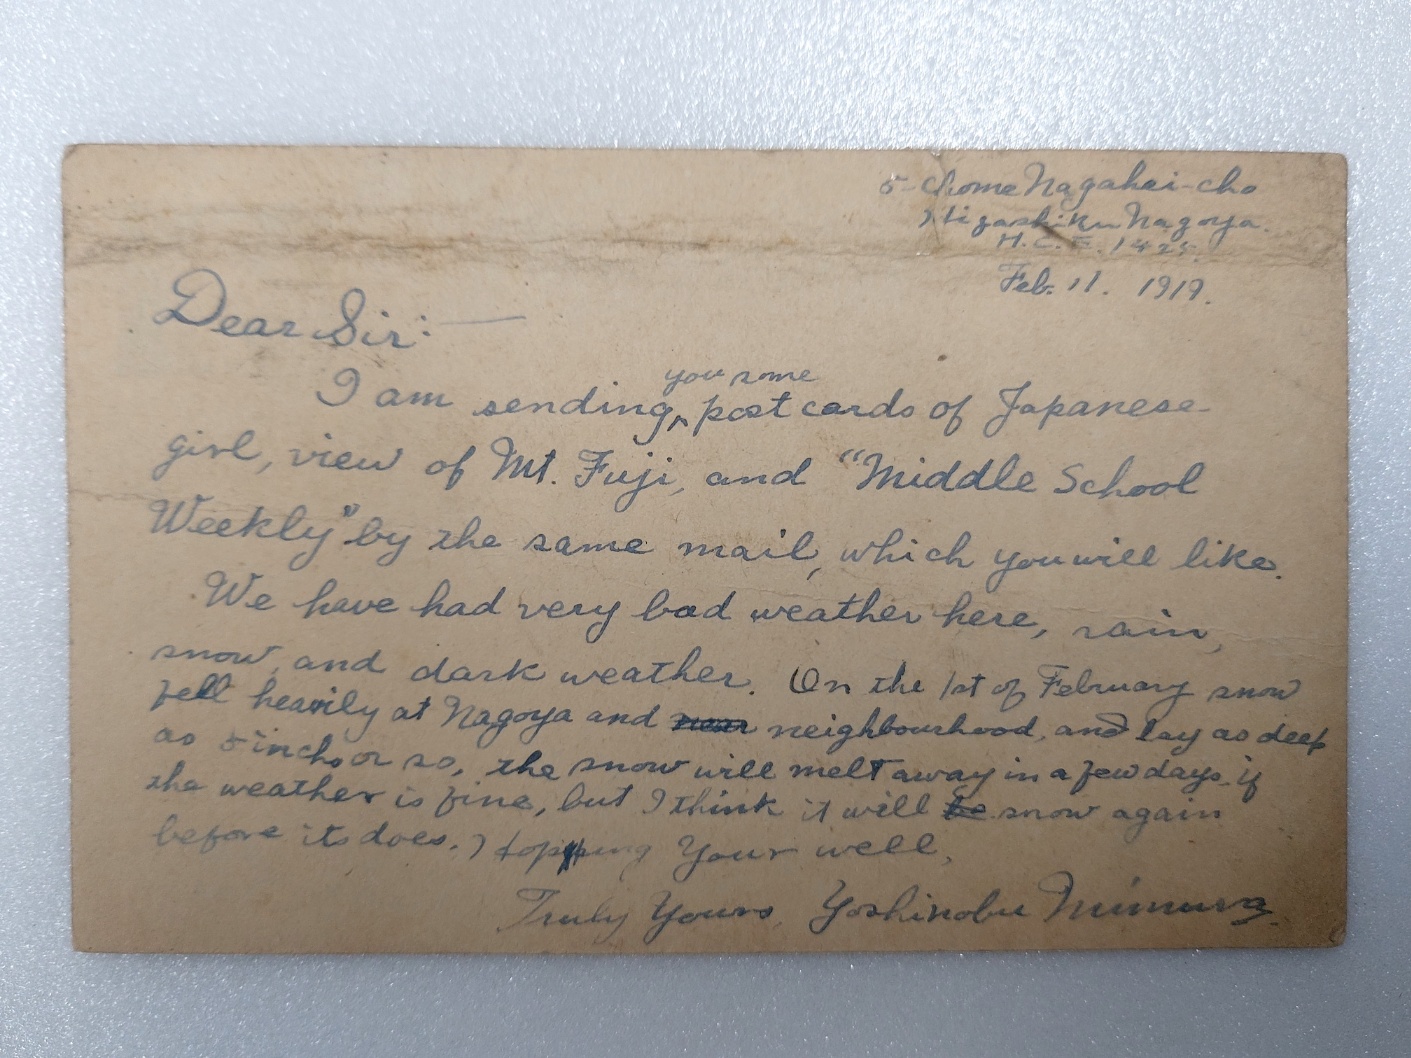 5-Chome Nagahei-cho
Higashiku Nagoya.
H.C.E. 1425.
Feb. 11. 1919.
Dear Sir:—
you some
I am sending ^ post cards of Japanese
girl, view of Mt. Fuji, and "Middle School
Weekly" by the same mail, which you will like.
We have had very bad weather here, rain,
snow, and dark weather. On the 1st of February snow
fell heavily at Nagoya and near neighbourhood, and lay as deep
as 5 inchs or so, the snow will melt away in a few days if
the weather is fine, but I think it will be snow again
before it does. Hopping Your well,
Truly Yours, Yoshinobu Mimura